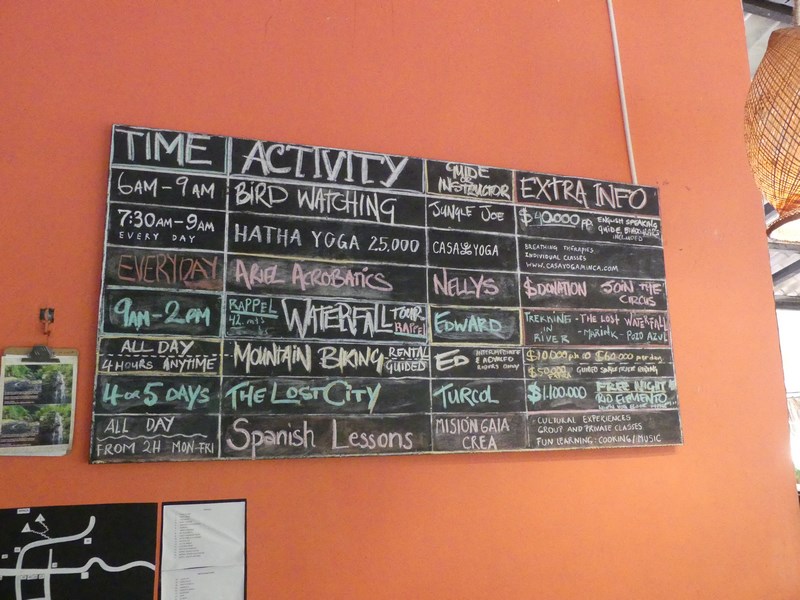 TIME ACTIVITY GUIDE OR INSTRUCTOR EXTRA INFO
6AM - 9AM BIRD WATCHING JUNGLE JOE $40.000 PP. ENGLISH SPEAKING
GUIDE, BINOCULARS
INCLUDED
7:30AM - 9AM
EVERY DAY
HATHA YOGA 25,000
CASA YOGA
BREATHING THERAPIES
INDIVIDUAL CLASSES
WWW.CASAYOGAMINCA.COM
EVERYDAY ARIEL ACROBATICS NELLYS $DONATION JOIN THE
CIRCUS
9AM - 2PM
RAPPEL
42 mts
WATERFALL TOUR
RAPPEL
EDWARD
TREKKING - THE LOST WATERFALL
IN
RIVER - MARINKA - POZO AZUL
ALL DAY
4 HOURS ANYTIME
MOUNTAIN BIKING RENTAL
GUIDED
ED INTERMEDIATE
& ADVACED
RIDERS ONLY
$10.000 ph to $60.000 per day
$50.000 GUIDED
4 OR 5 DAYS THE LOST CITY TURCOL $1.100.000 FREE NIGHT
RIO ELEMENTO
ALL DAY
FROM 2H MON-FRI
Spanish Lessons
MISIÓN GAIA
CREA
CULTURAL EXPERIENCES
GROUP AND PRIVATE CLASSES
FUN LEARNING: COOKING/MUSIC